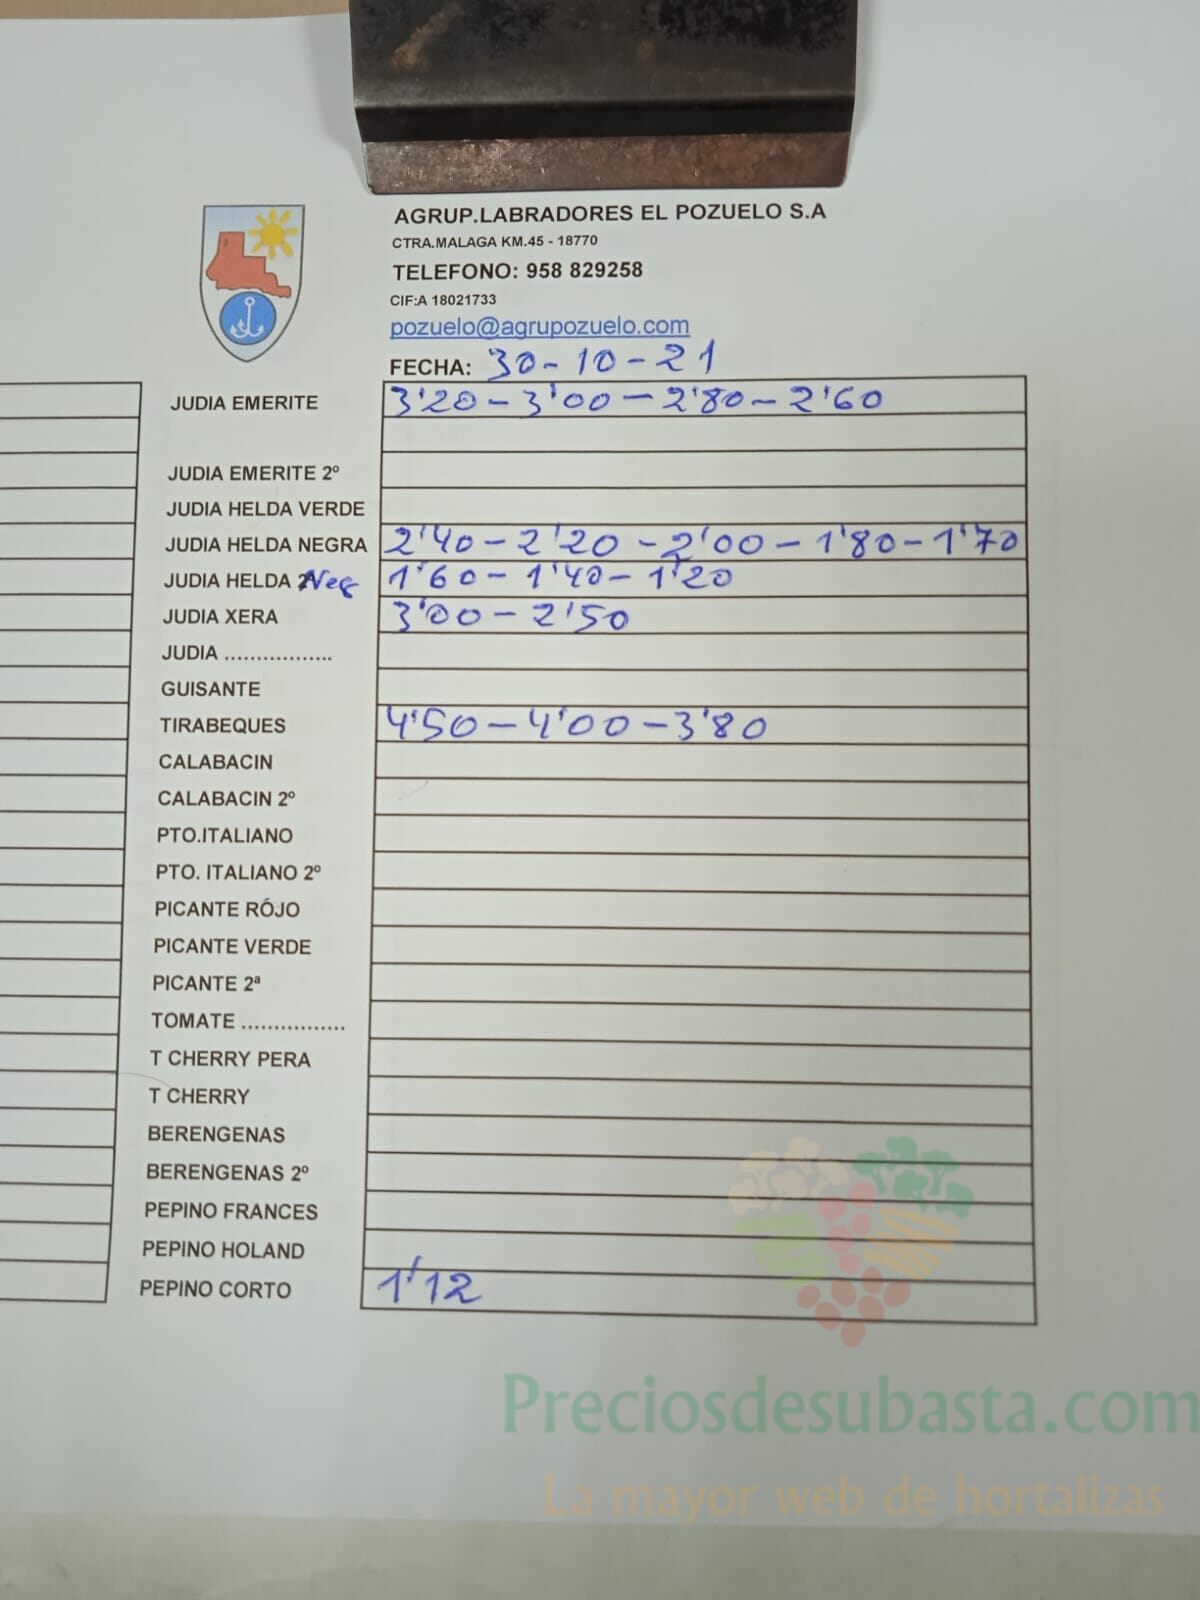 AGRUP.LABRADORES EL POZUELO S.A
CTRA.MALAGA KM.45 - 18770
TELEFONO: 958 829258
CIF:A 18021733
pozuelo@agrupozuelo.com
FECHA: 30-10-21
JUDIA EMERITE 3'20-3'00-2'80-2'60
JUDIA EMERITE 2º
JUDIA HELDA VERDE
JUDIA HELDA NEGRA 2'40-2'20-2'00-1'80-1'70
JUDIA HELDA Neg 1'60-1'40-1'20
JUDIA XERA 3'00-2'50
JUDIA .................
GUISANTE
TIRABEQUES 4'50-4'00-3'80
CALABACIN
CALABACIN 2º
PTO.ITALIANO
PTO. ITALIANO 2º
PICANTE RÓJO
PICANTE VERDE
PICANTE 2ª
TOMATE ................
T CHERRY PERA
T CHERRY
BERENGENAS
BERENGENAS 2º
PEPINO FRANCES
PEPINO HOLAND
PEPINO CORTO 1'12
Preciosdesubasta.com
La mayor web de hortalizas